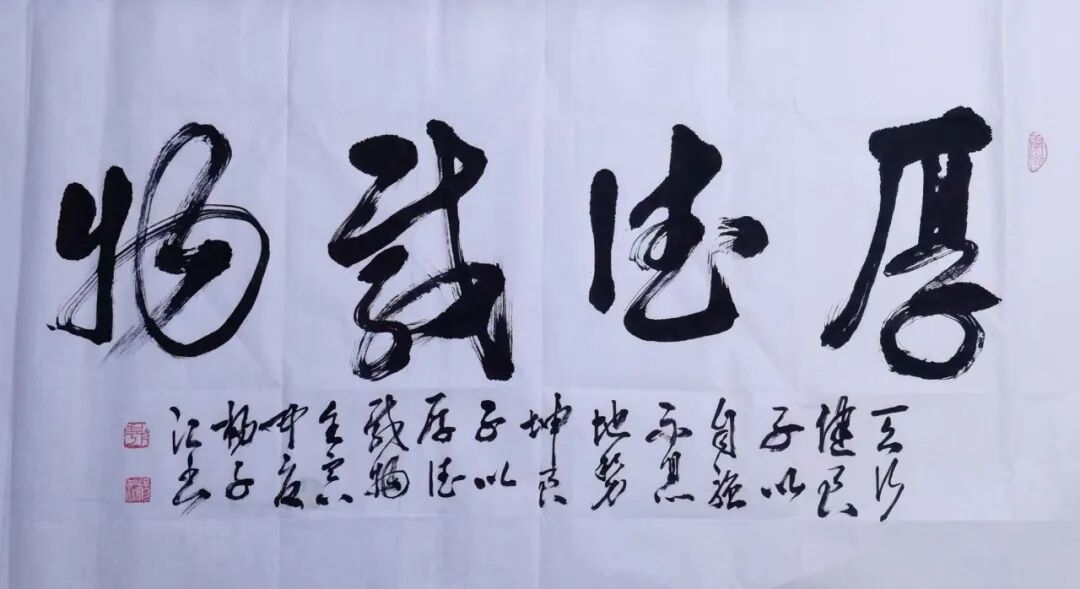 厚德載物
天行
健君
子以
自强
不息
地勢
坤君
子以
厚德
載物
壬寅
中夏
楊子
江書